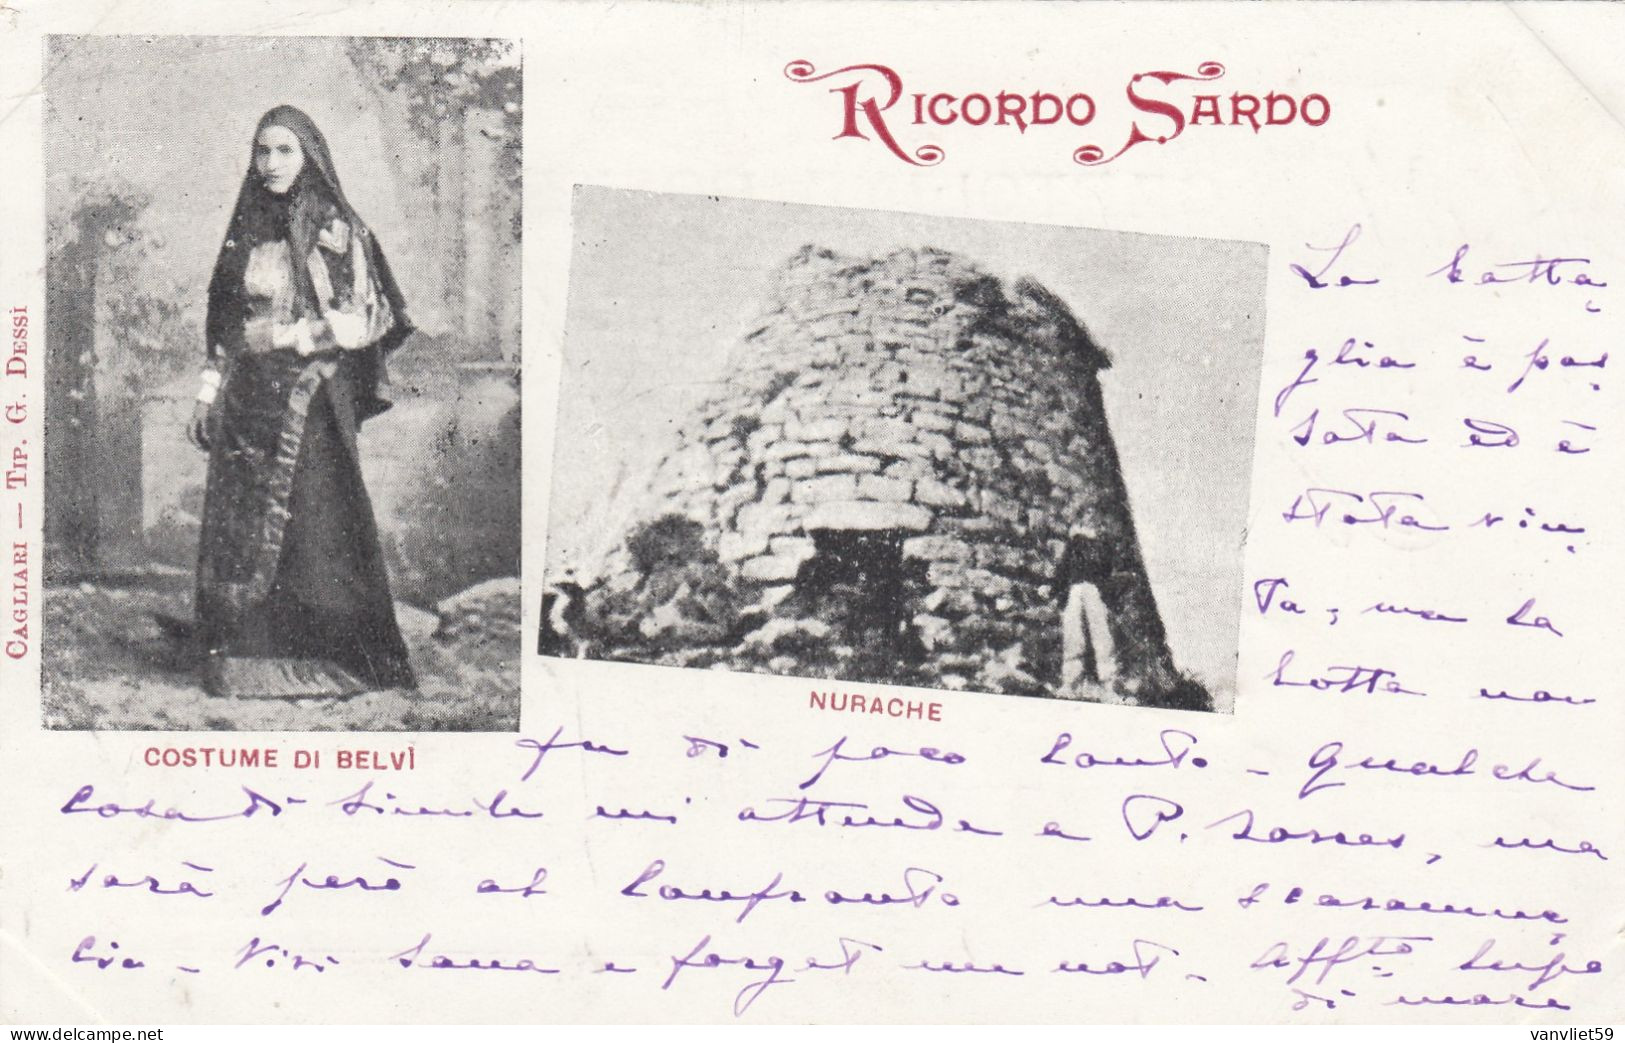 RICORDO SARDO
CAGLIARI — TIP. G. DESSÌ
COSTUME DI BELVÌ
NURACHE
La batta-
glia è pas-
sata ed è
stata vin-
ta, ma la
lotta non
fu di poco conto - Qualche
cosa di simile mi attende a P. Torres, ma
sarà però al confronto una scaramuc-
cia - Vivi sana e forget me not - Aff.to Lupo
di mare
vanvliet59